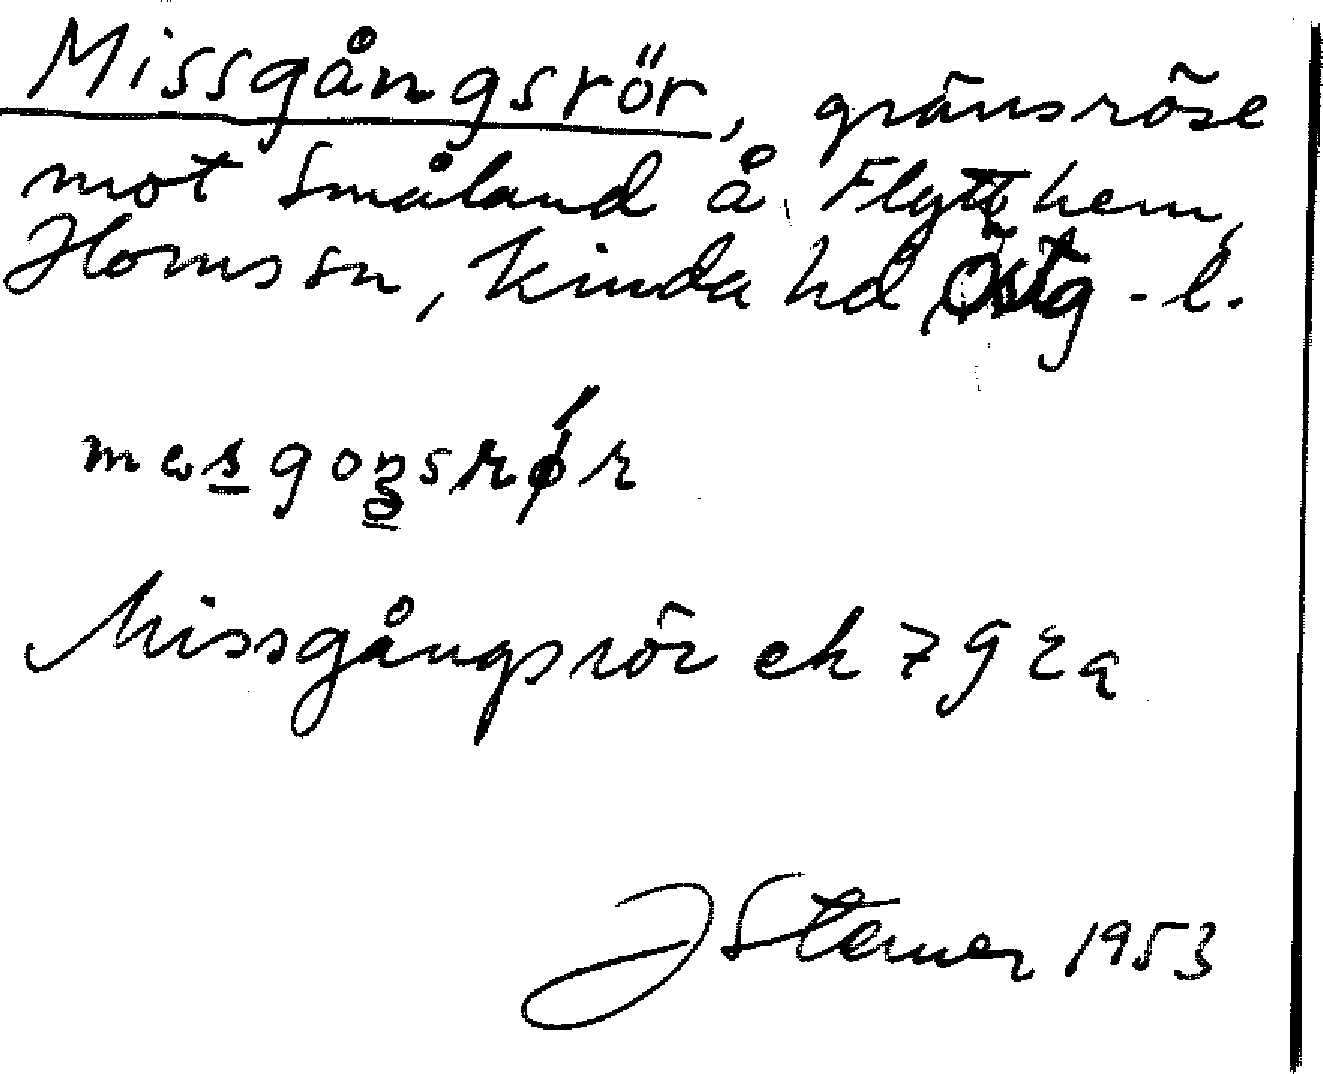 Missgångsrör, gränsröse
mot Småland å Flytthem,
Horns sn, Kinda hd Östg-l.
Missgångsrör ek 7 g
J Sterner 1953